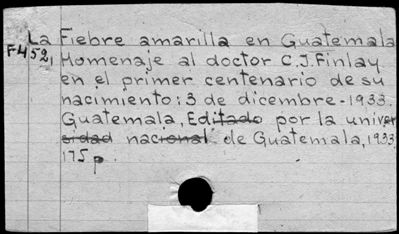 La Fiebre amarilla en Guatemala
F452, Homenaje al doctor C.J.Finlay
en el primer centenario de su
nacimiento: 3 de dicembre - 1933.
Guatemala, Editado por la univer
sidad nacional de Guatemala, 1933
175 p.